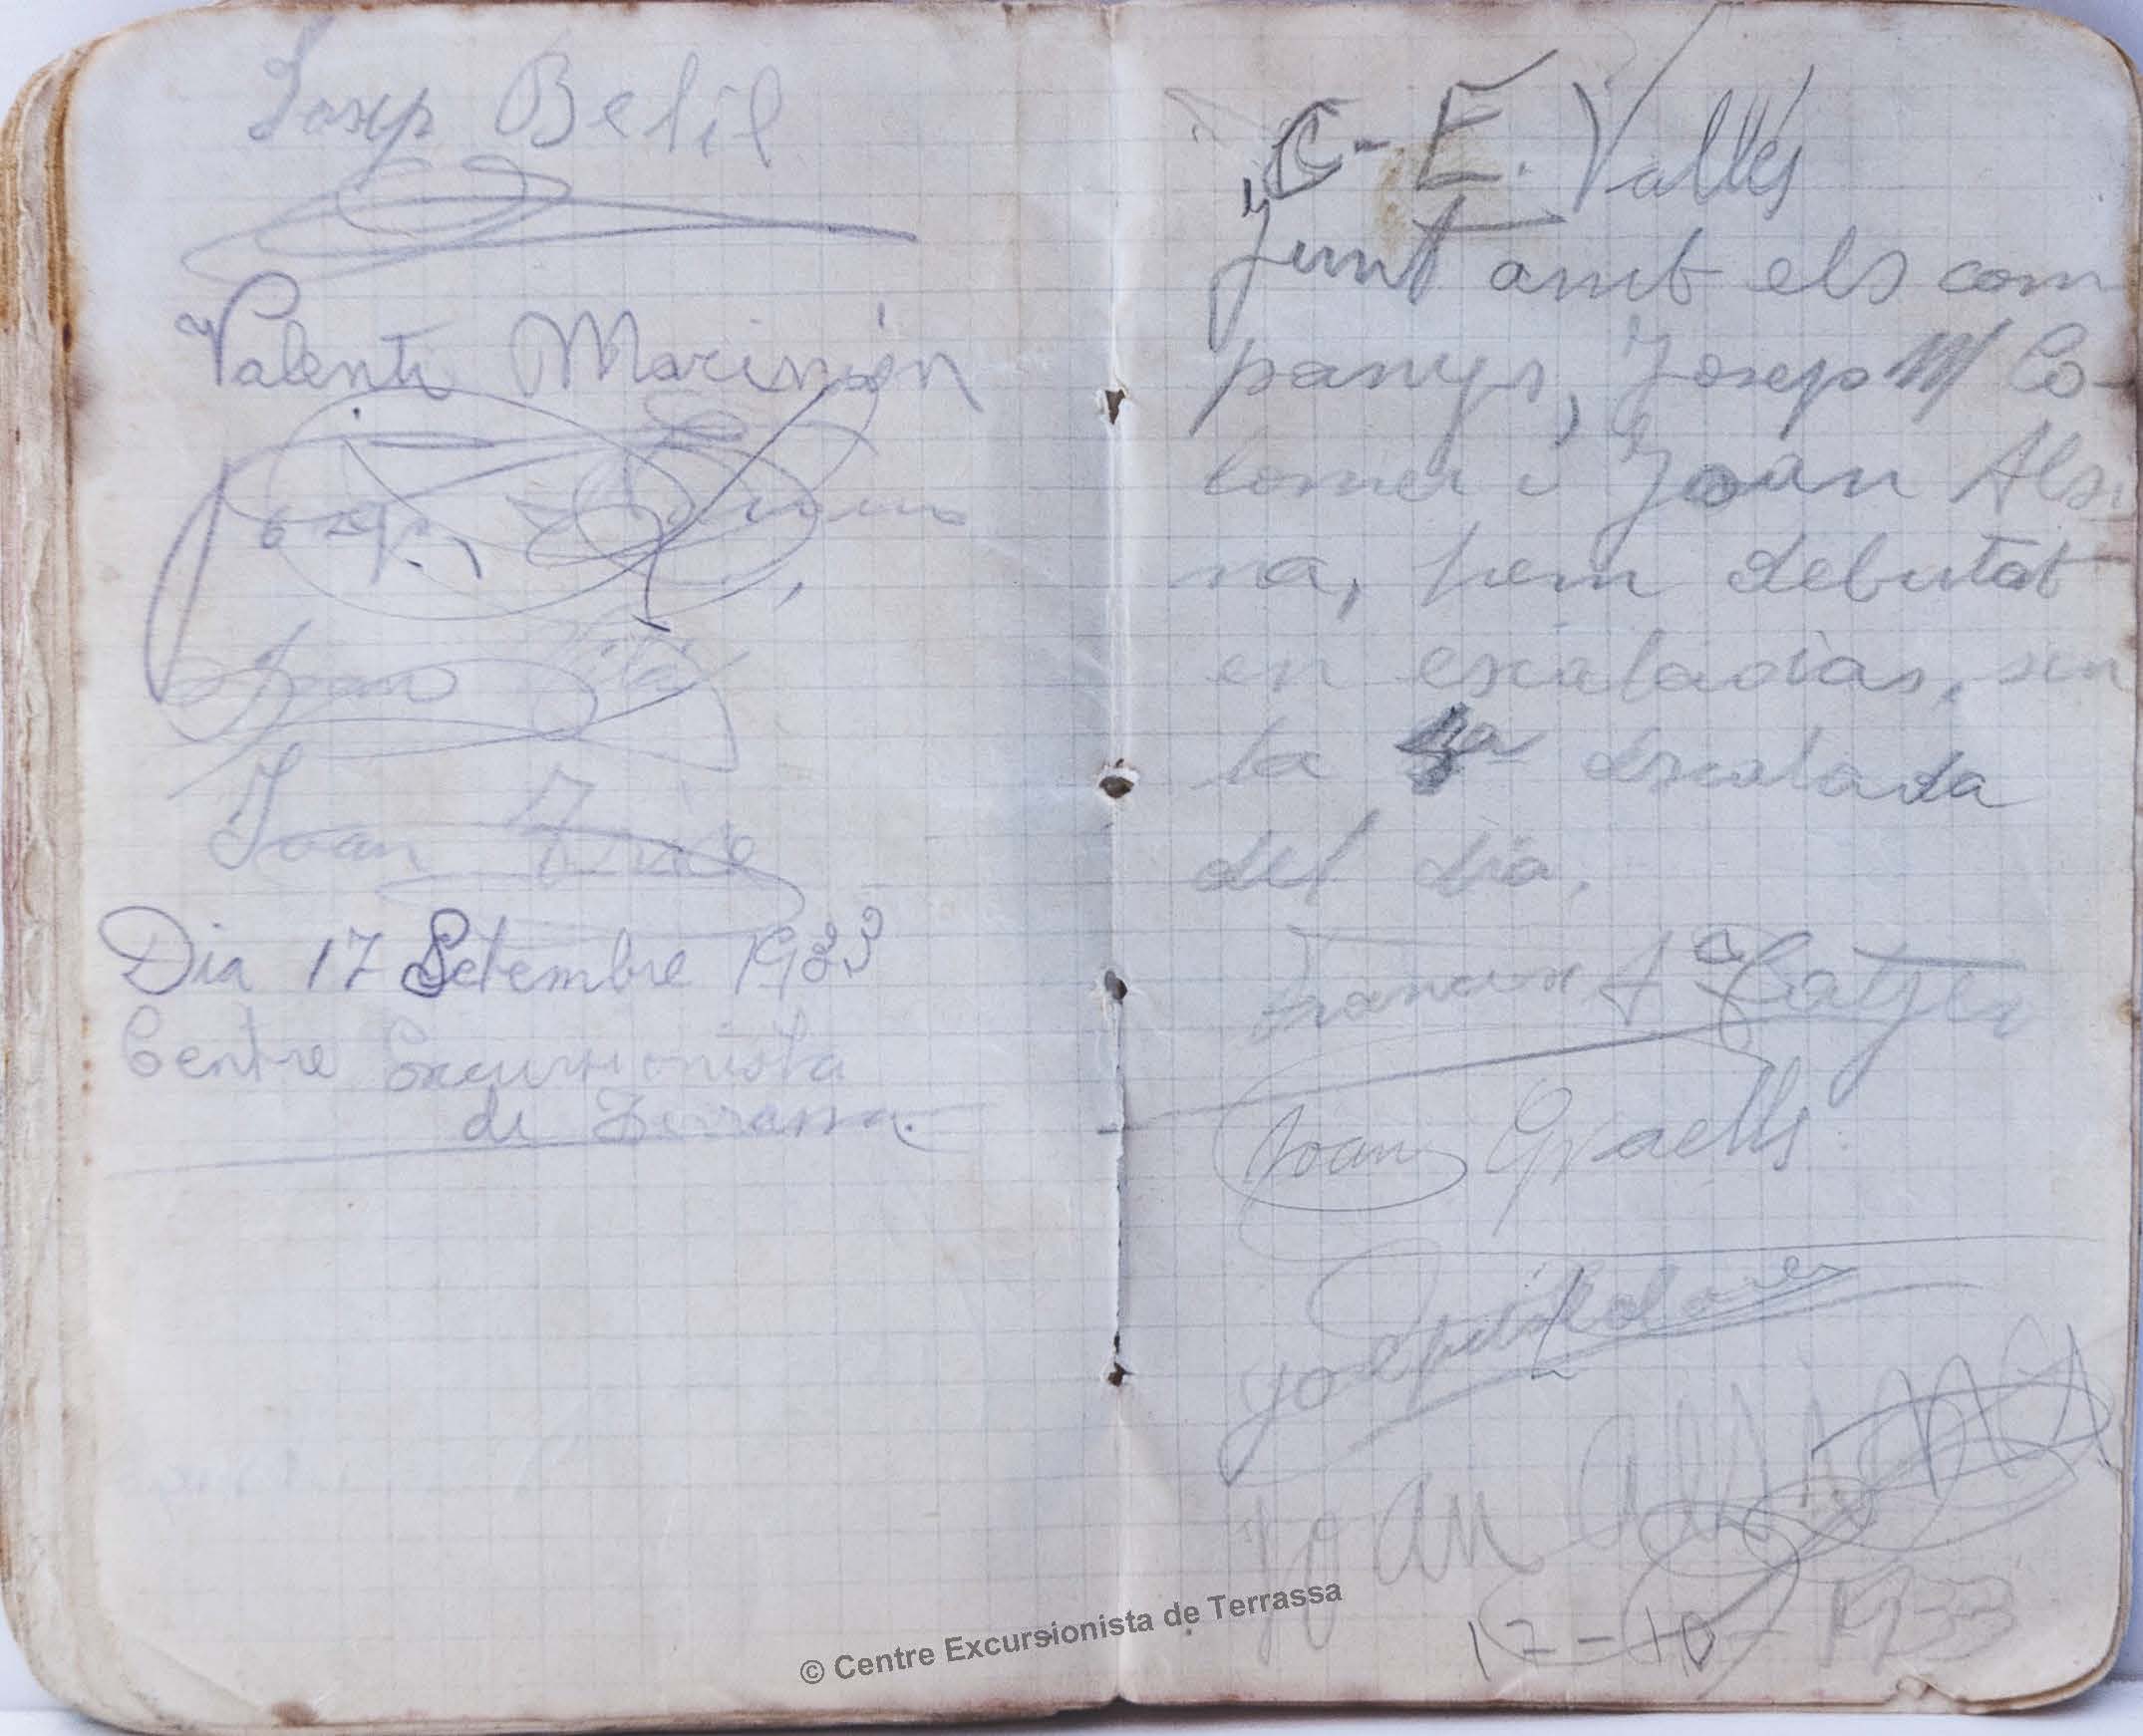 Josep Belil
Valentí Marimón
Josep
Joan Vilá
Joan
Dia 17 Setembre 1933
Centre Excursionista
de Terrassa.
C-E. Vallés
Junt amb els com
panys, Josep M Co-
lomer i Joan Alsi
na, hem debutat
en escaladas, sen
la escalada
del dia.
Joan Graells
Joan Alsina
17-10-1933
© Centre Excursionista de Terrassa